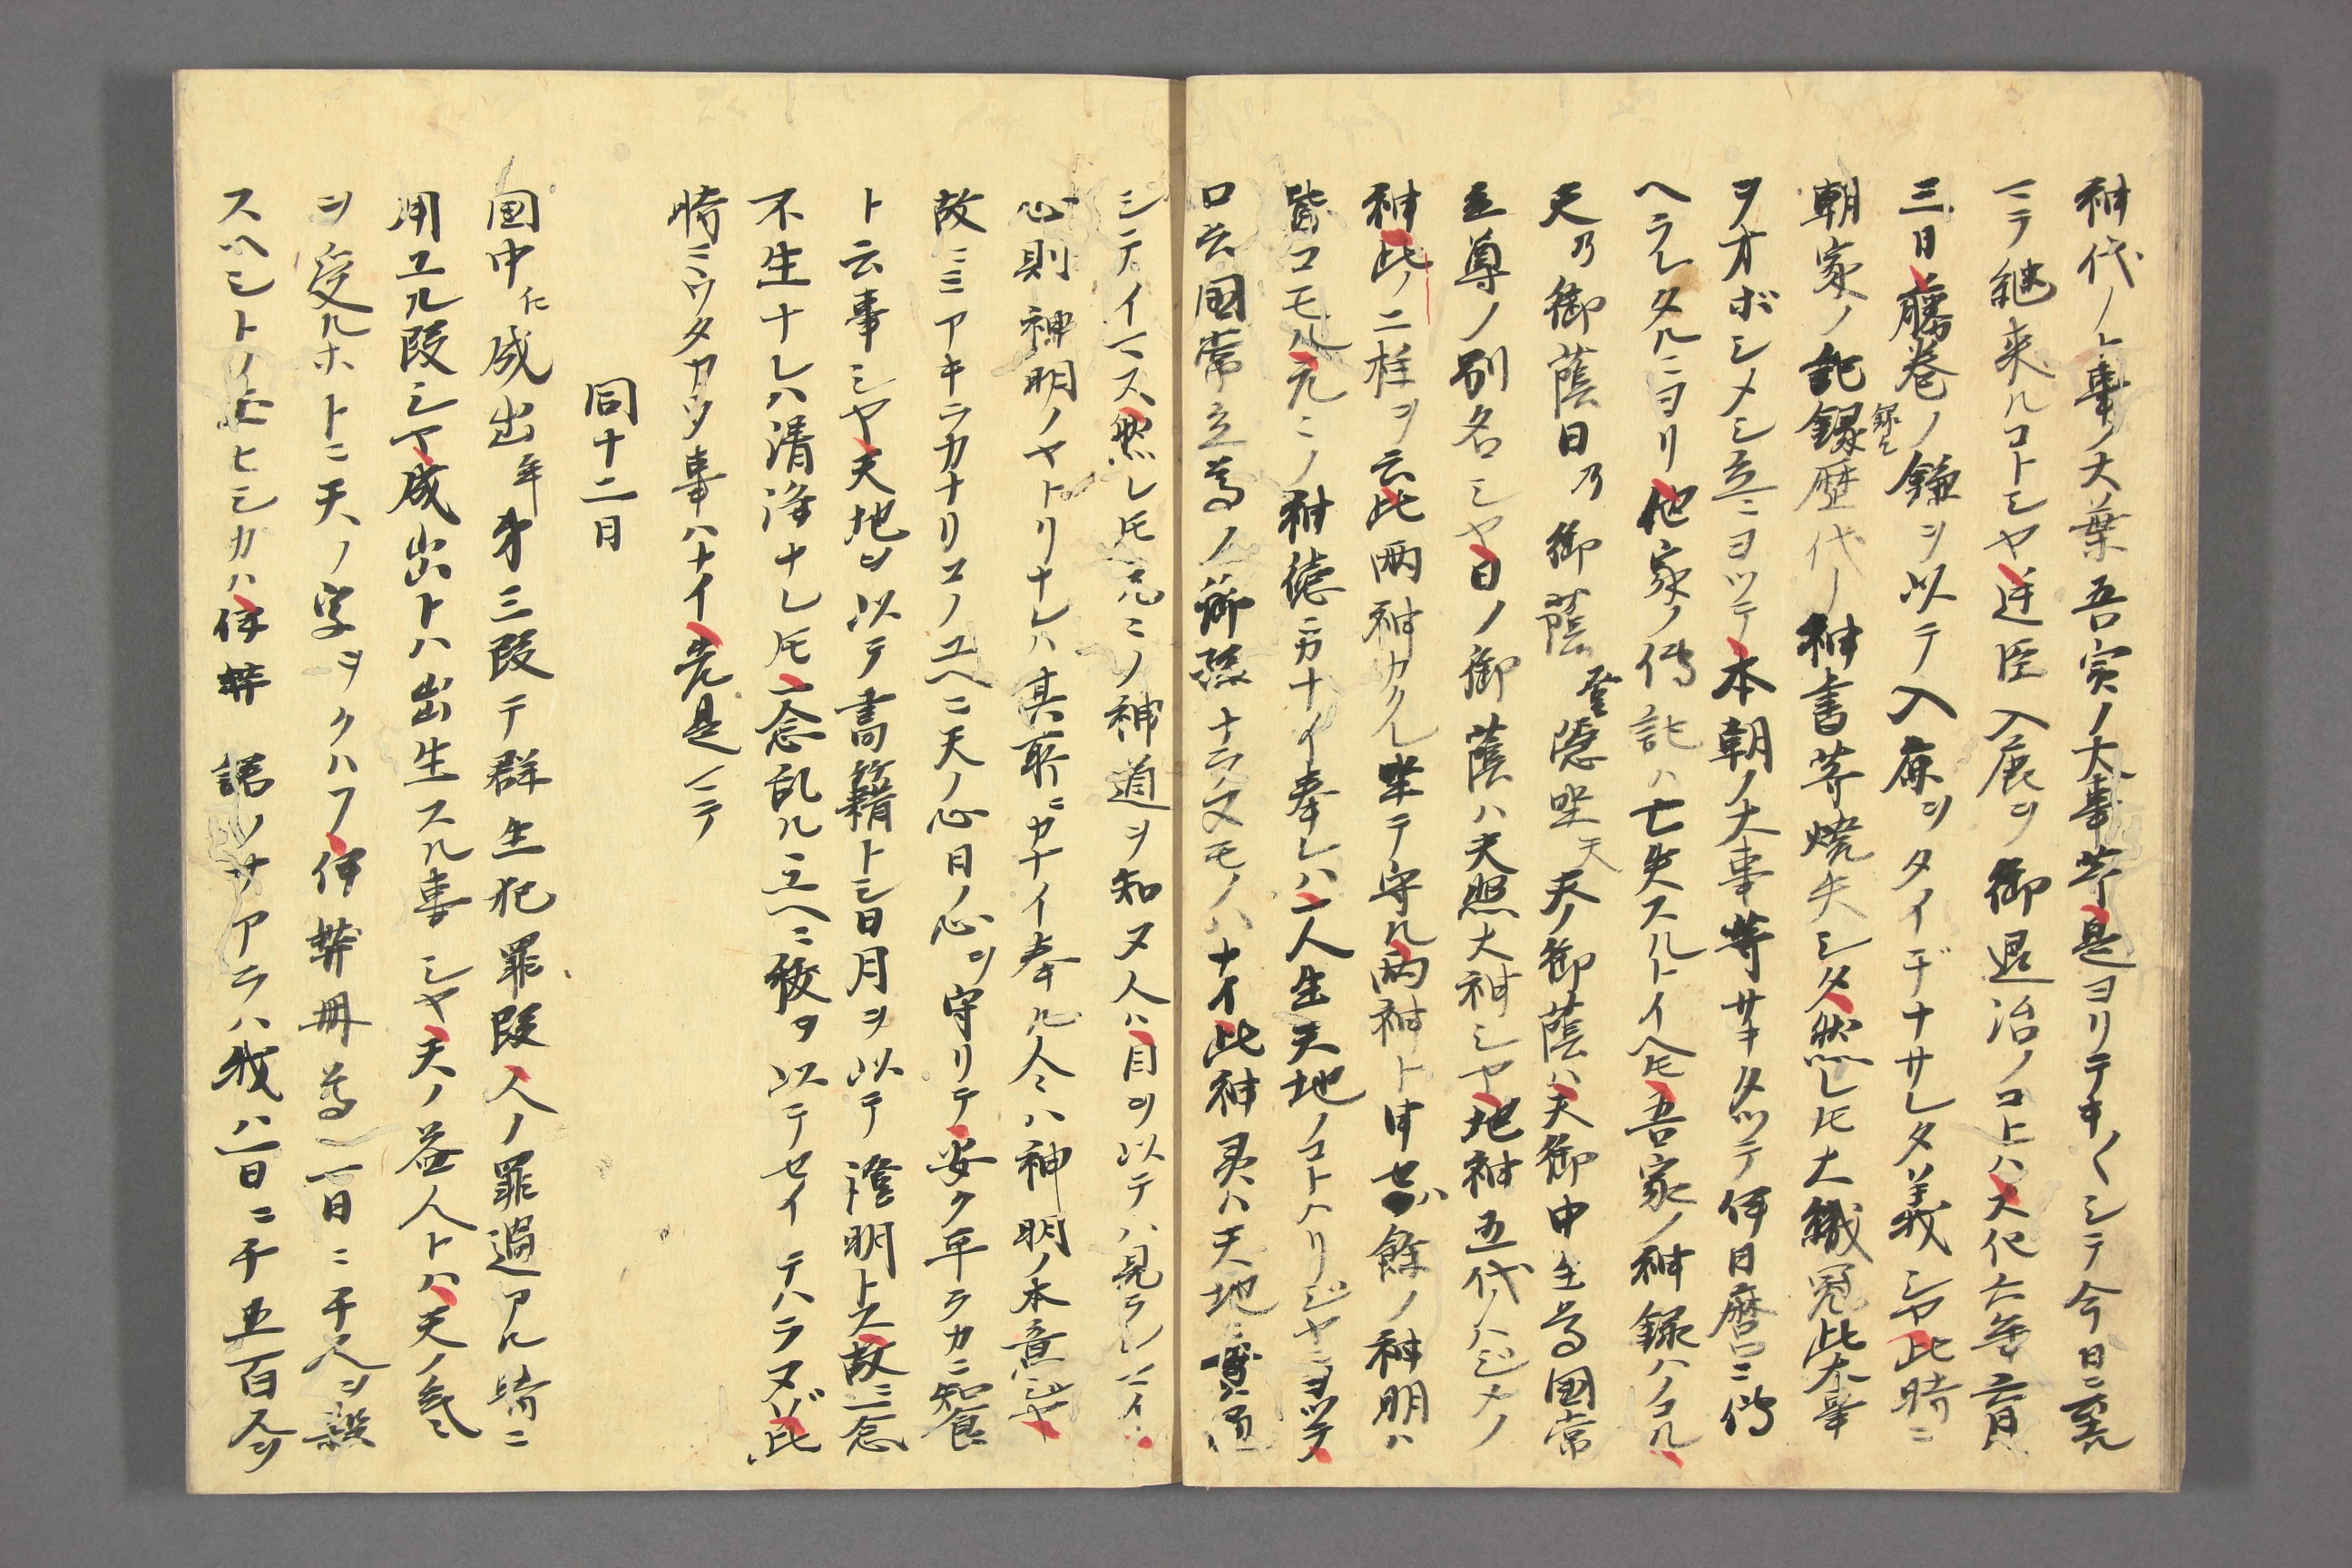 神代ノト事ノ大葉吾実ノ大事等是ヨリテキ〱シテ今日ニ至ル
ニテ継来ルコトシヤ逆臣入鹿ヲ御退治ノコトハ大化六年六月
三日藤巻ノ鎌ヲ以テ入鹿ヲタイヂナサレタ義シヤ此時ニ
朝家ノ記録歴代ノ神書等焼失シタ然レ𪜈大織冠此大事
ヲオボシメシ立ニヨツテ本朝ノ大事等サキタツテ伊目麿ニ傳
ヘラレタルニヨリ他家ノ傳記ハ亡失スルトイヘ𪜈吾家ノ神録ハノコル
天乃御蔭日乃御蔭登隠坐天 天ノ御蔭ハ天御中主尊国常
立尊ノ別名シヤ日ノ御蔭ハ天照大神シヤ地神五代ノハジメノ
神此ノ二柱ヲ云此両神カクレ坐テ守ル両神ト申セバ餘ノ神明ハ
皆コモル元ニノ神徳ニカナイ奉レハ一人生天地ノコトハリジヤニヨツテ
口云国常立尊ノ御孫ナラヌモノハナイ此神灵ハ天地ニ
シテイマス然レ𪜈元ニノ神道ヲ知ヌ人ハ目ヲ以テハ見ラレヌイ
心則神明ノヤトリナレハ其所ニカナイ奉ル人ハ神明ノ本意ジヤ
故ニミアキラカナリコノユヘニ天ノ心日ノ心ヲ守リテ安ク平ラカニ知食
ト云事シヤ天地ヲ以テ書籍トシ日月ヲ以テ證明トス故ニ一念
不生ナレハ清浄ナレ𪜈一念乱ルユヘニ祓ヲ以テセイテハラヌバ此
時ニウタカツ事ハナイ先是ニテ
同十二日
国中仁成出年 才三段テ群生犯罪段人ノ罪過アル時ニ
用ユル段シヤ成出トハ出生スル事シヤ天ノ益人トハ天ノ気
ヲ受ルホトニ天ノ字ヲクハフ伊弉冊尊一日ニ千人ヲ殺
スヘシトノ玉ヒシカハ伊弉諾ノサアラハ我ハ一日ニ千五百人ヲ